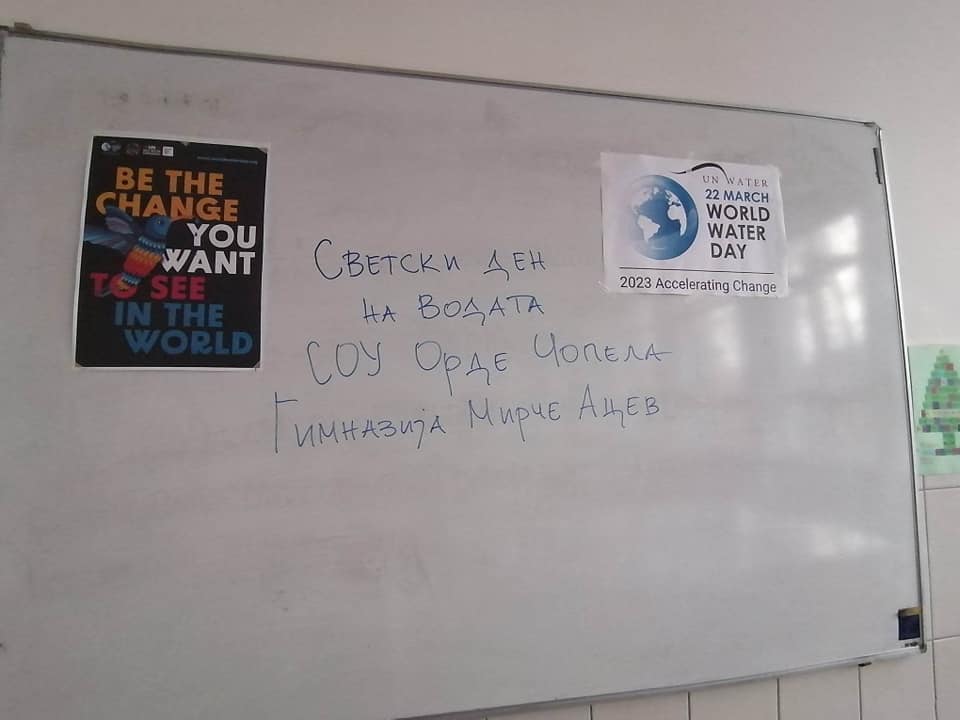 BE THE
CHANGE
YOU
WANT
TO SEE
IN THE
WORLD
UN WATER
22 MARCH
WORLD
WATER
DAY
2023 Accelerating Change
Светски ден
на Водата
СОУ Орде Чопела
Гимназија Мирче Ацев